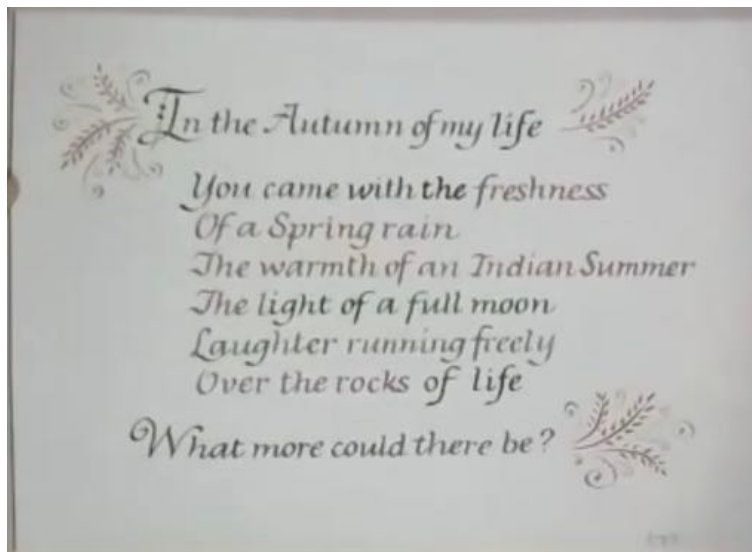 In the Autumn of my life
You came with the freshness
Of a Spring rain
The warmth of an Indian Summer
The light of a full moon
Laughter running freely
Over the rocks of life
What more could there be?